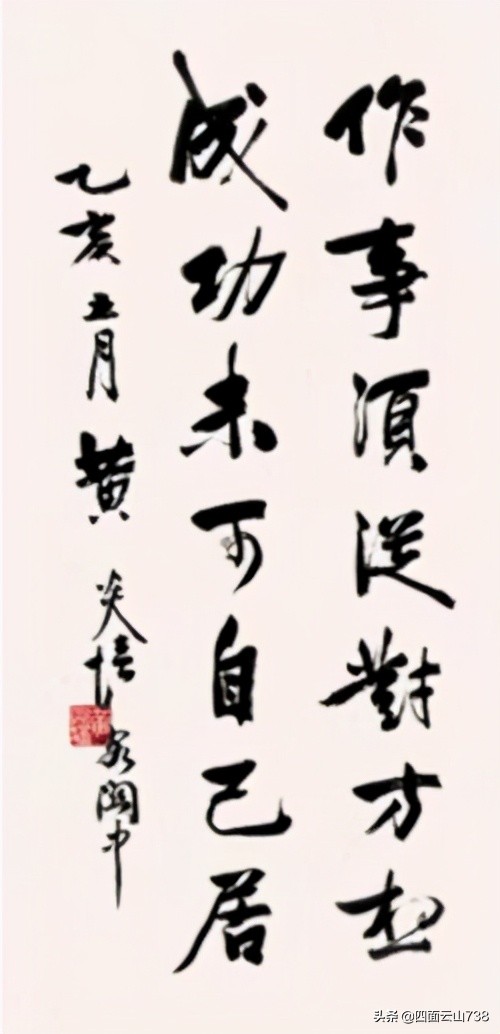 作事須從對方想
成功未可自己居
乙亥五月 黄炎培 客閩中
头条 @四面云山738